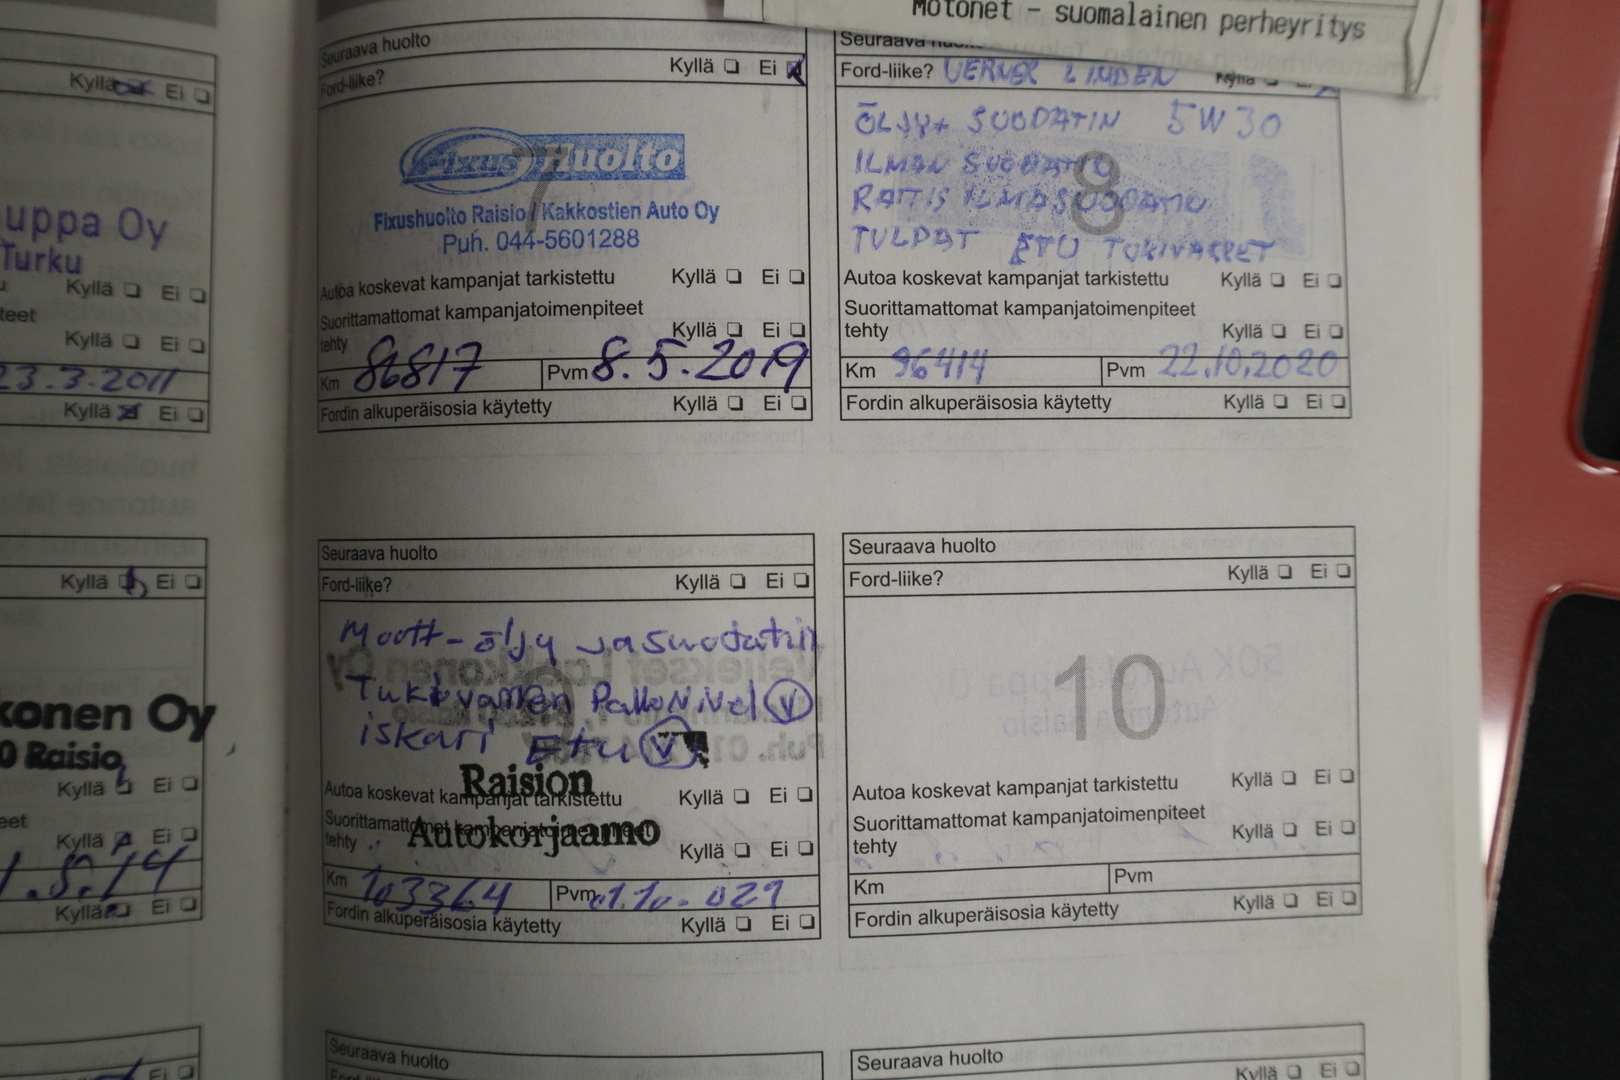 Motonet - suomalainen perheyritys
Kyllä Ei
uppa Oy
Turku
Kyllä Ei
teet
Kyllä Ei
23.3.2011
Kyllä Ei
Seuraava huolto
Ford-liike? Kyllä Ei
7
Fixus Huolto
Fixushuolto Raisio / Kakkostien Auto Oy
Puh. 044-5601288
Autoa koskevat kampanjat tarkistettu Kyllä Ei
Suorittamattomat kampanjatoimenpiteet
tehty Kyllä Ei
Km 86817 Pvm 8.5.2019
Fordin alkuperäisosia käytetty Kyllä Ei
Seuraava
Ford-liike? VERNER LINDEN Kyllä
ÖLJY+ SUODATIN 5W30
ILMAN SUODATIN
8
TULPAT ETU TUKIVARRET
Autoa koskevat kampanjat tarkistettu Kyllä Ei
Suorittamattomat kampanjatoimenpiteet
tehty Kyllä Ei
Km 96414 Pvm 22.10.2020
Fordin alkuperäisosia käytetty Kyllä Ei
Kyllä Ei
konen Oy
0 Raisio
Kyllä Ei
eet
Kyllä Ei
1.5.14
Kyllä Ei
Seuraava huolto
Ford-liike? Kyllä Ei
Moott-öljy ja suodatin
Tukivarren Pallonivel V
iskari Etu V
9
Raision
Autoa koskevat kampanjat tarkistettu Kyllä Ei
Suorittamattomat kampanjatoimenpiteet
Autokorjaamo
tehty Kyllä Ei
Km 103364 Pvm
Fordin alkuperäisosia käytetty Kyllä Ei
Seuraava huolto
Ford-liike? Kyllä Ei
10
Autoa koskevat kampanjat tarkistettu Kyllä Ei
Suorittamattomat kampanjatoimenpiteet
tehty Kyllä Ei
Km Pvm
Fordin alkuperäisosia käytetty Kyllä Ei
Ei
Seuraava huolto
Seuraava huolto
Kyllä Ei